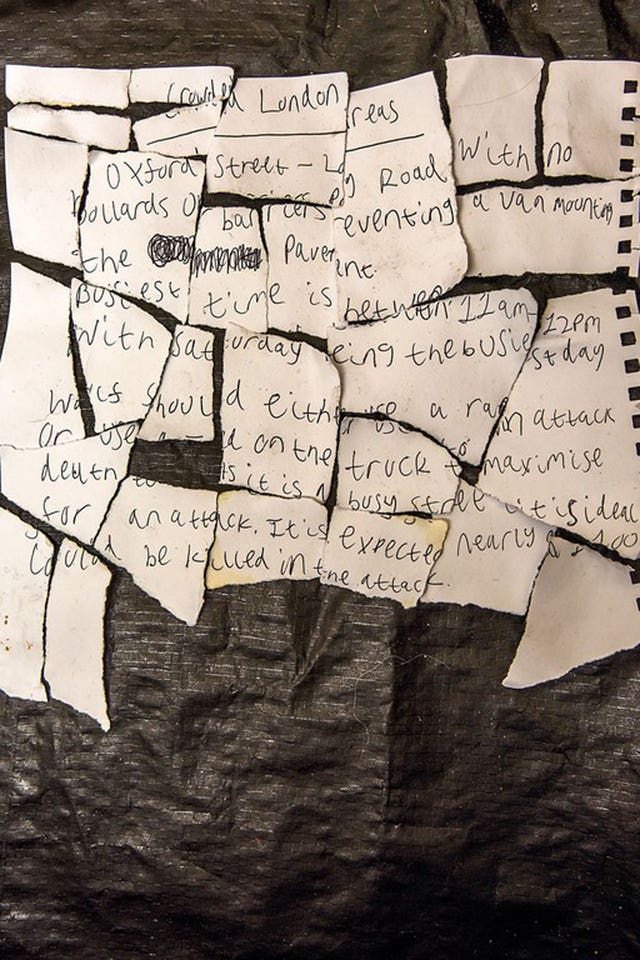 Crowded London Areas
Oxford Street – Long Road With no
bollards or barriers preventing a van mounting
the Pavement.
Busiest time is between 11am – 12pm
With Saturday being the busiest day
Wolf should either use a ram attack
or use a on the truck to maximise
death as it is a busy street it is ideal
for an attack. It is expected nearly 100
could be killed in the attack.